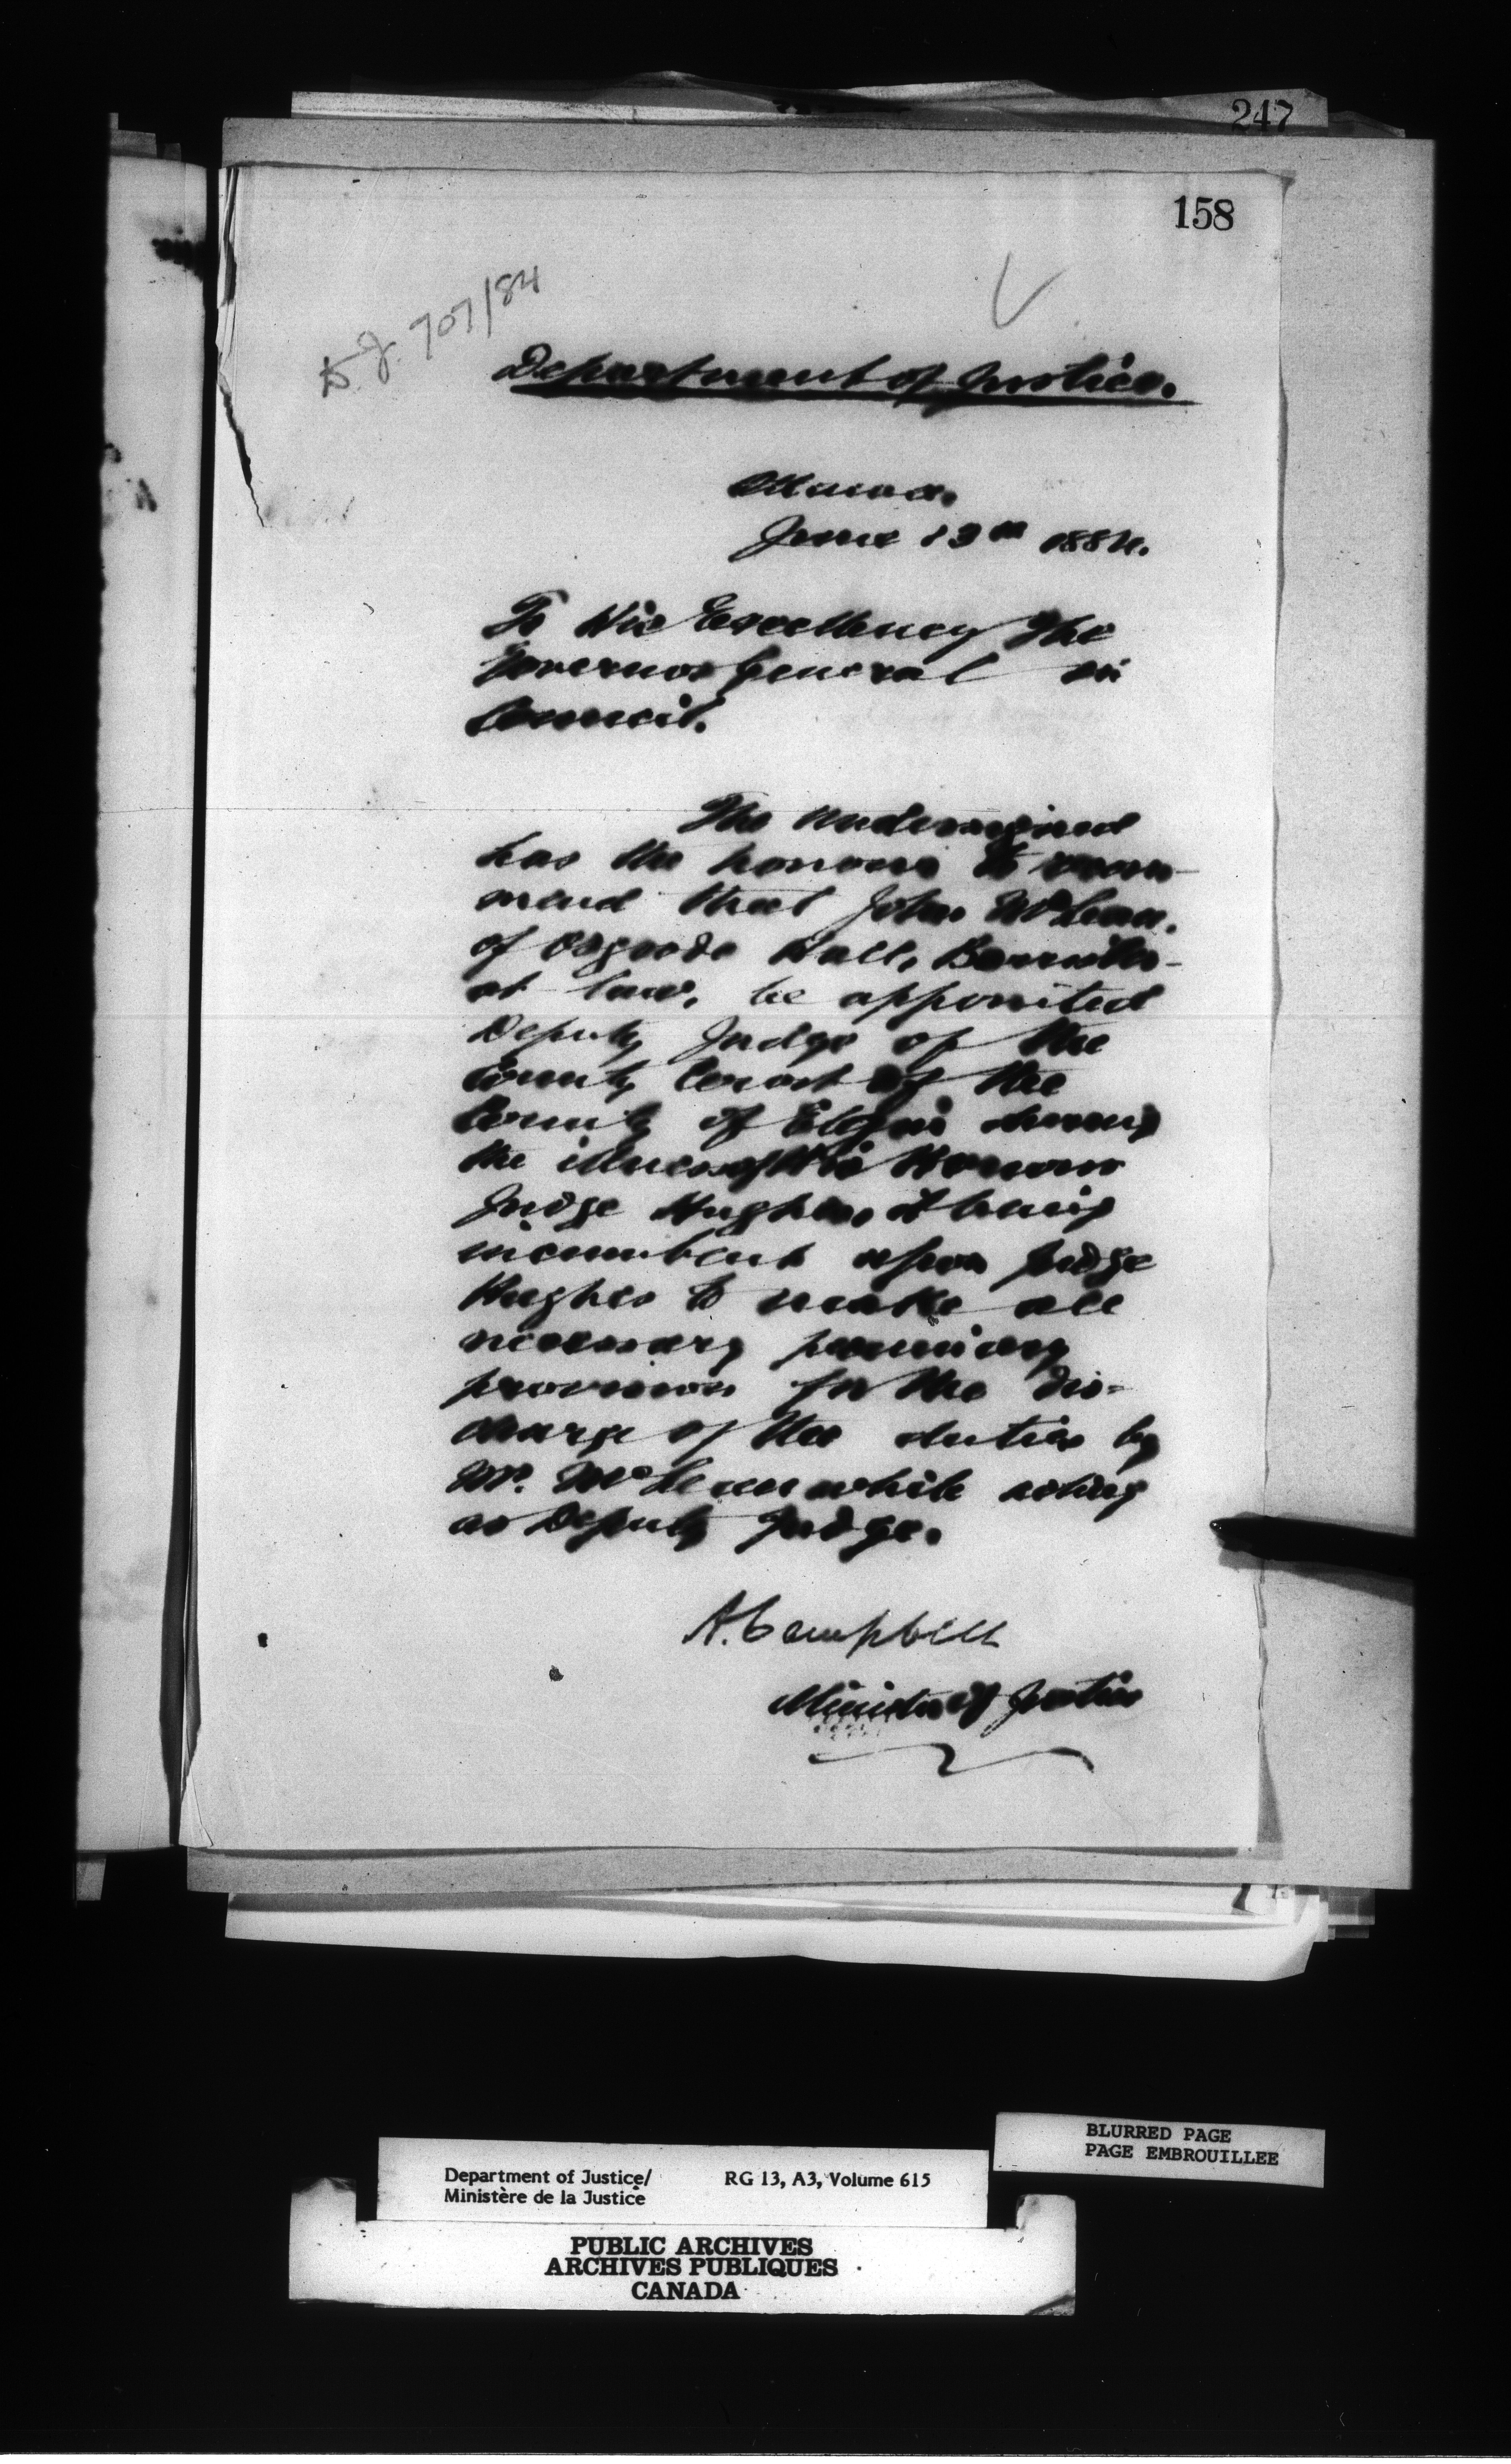 247
158
D.J. 707/84
Department of Justice.
Ottawa.
June 13th 1884.
To His Excellency The
Governor General in
Council.
The undersigned
has the honour to recom-
mend that John McLean,
of Osgoode Hall, Barrister-
at law, be appointed
Deputy Judge of the
County Court of the
County of Elgin during
the illness of His Honour
Judge Hughes, it being
incumbent upon Judge
Hughes to make all
necessary pecuniary
provision for the dis-
charge of the duties by
Mr. McLean while acting
as Deputy Judge.
A. Campbell
Minister of Justice
BLURRED PAGE
PAGE EMBROUILLEE
Department of Justice/ RG 13, A3, Volume 615
Ministère de la Justice
PUBLIC ARCHIVES
ARCHIVES PUBLIQUES
CANADA